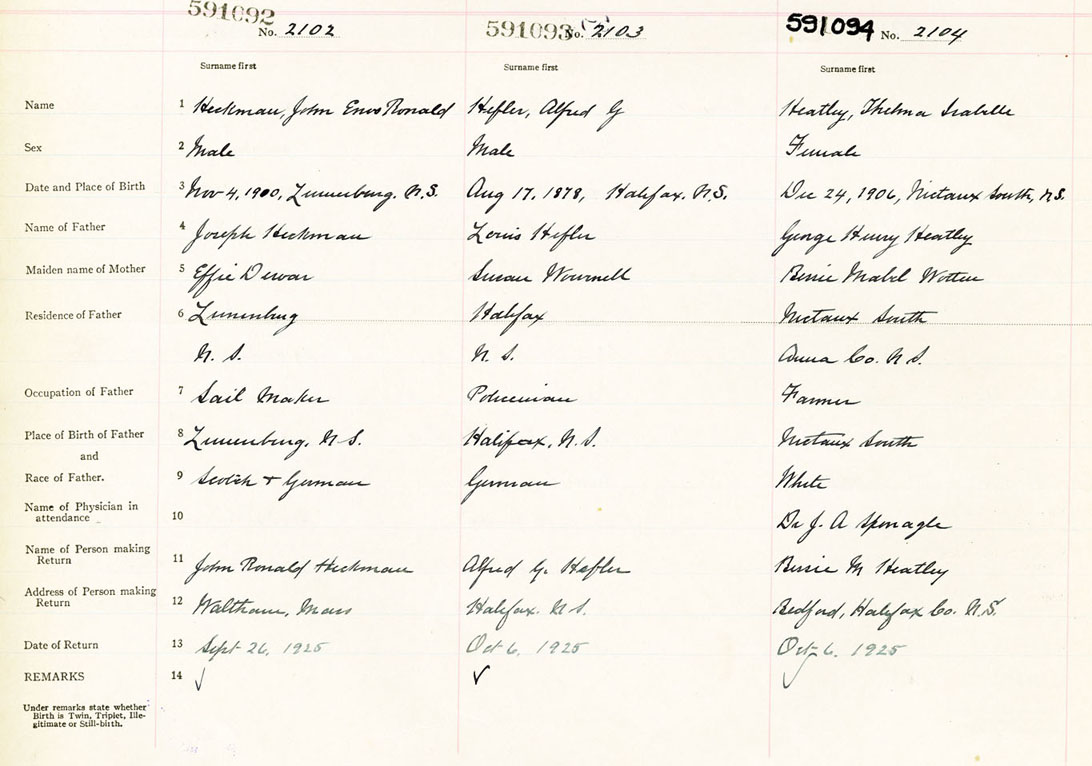 591092 No. 2102 591093 No. 2103 591094 No. 2104
Surname first Surname first Surname first
Name 1 Heckman, John Enos Ronald Hefler, Alfred G Heatley, Thelma Isabelle
Sex 2 Male Male Female
Date and Place of Birth 3 Nov 4, 1900, Lunenburg. N.S. Aug 17, 1878, Halifax. N.S. Dec 24, 1906, Nictaux South, N.S.
Name of Father 4 Joseph Heckman Louis Hefler George Henry Heatley
Maiden name of Mother 5 Effie Dewar Susan Wournell Bessie Mabel Wotten
Residence of Father 6 Lunenburg Halifax Nictaux South
N. S. N. S. Anna Co. N S.
Occupation of Father 7 Sail Maker Policeman Farmer
Place of Birth of Father 8 Lunenburg, N S. Halifax, N. S. Nictaux South
and
Race of Father. 9 Scotch + German German White
Name of Physician in
attendance 10 Dr J. A Sponagle
Name of Person making
Return 11 John Ronald Heckman Alfred G. Hefler Bessie M Heatley
Address of Person making
Return 12 Waltham, Mass Halifax. N S. Bedford, Halifax Co. N.S.
Date of Return 13 Sept 26, 1925 Oct 6, 1925 Oct 6, 1925
REMARKS 14 ✓ ✓ ✓
Under remarks state whether
Birth is Twin, Triplet, Ille-
gitimate or Still-birth.